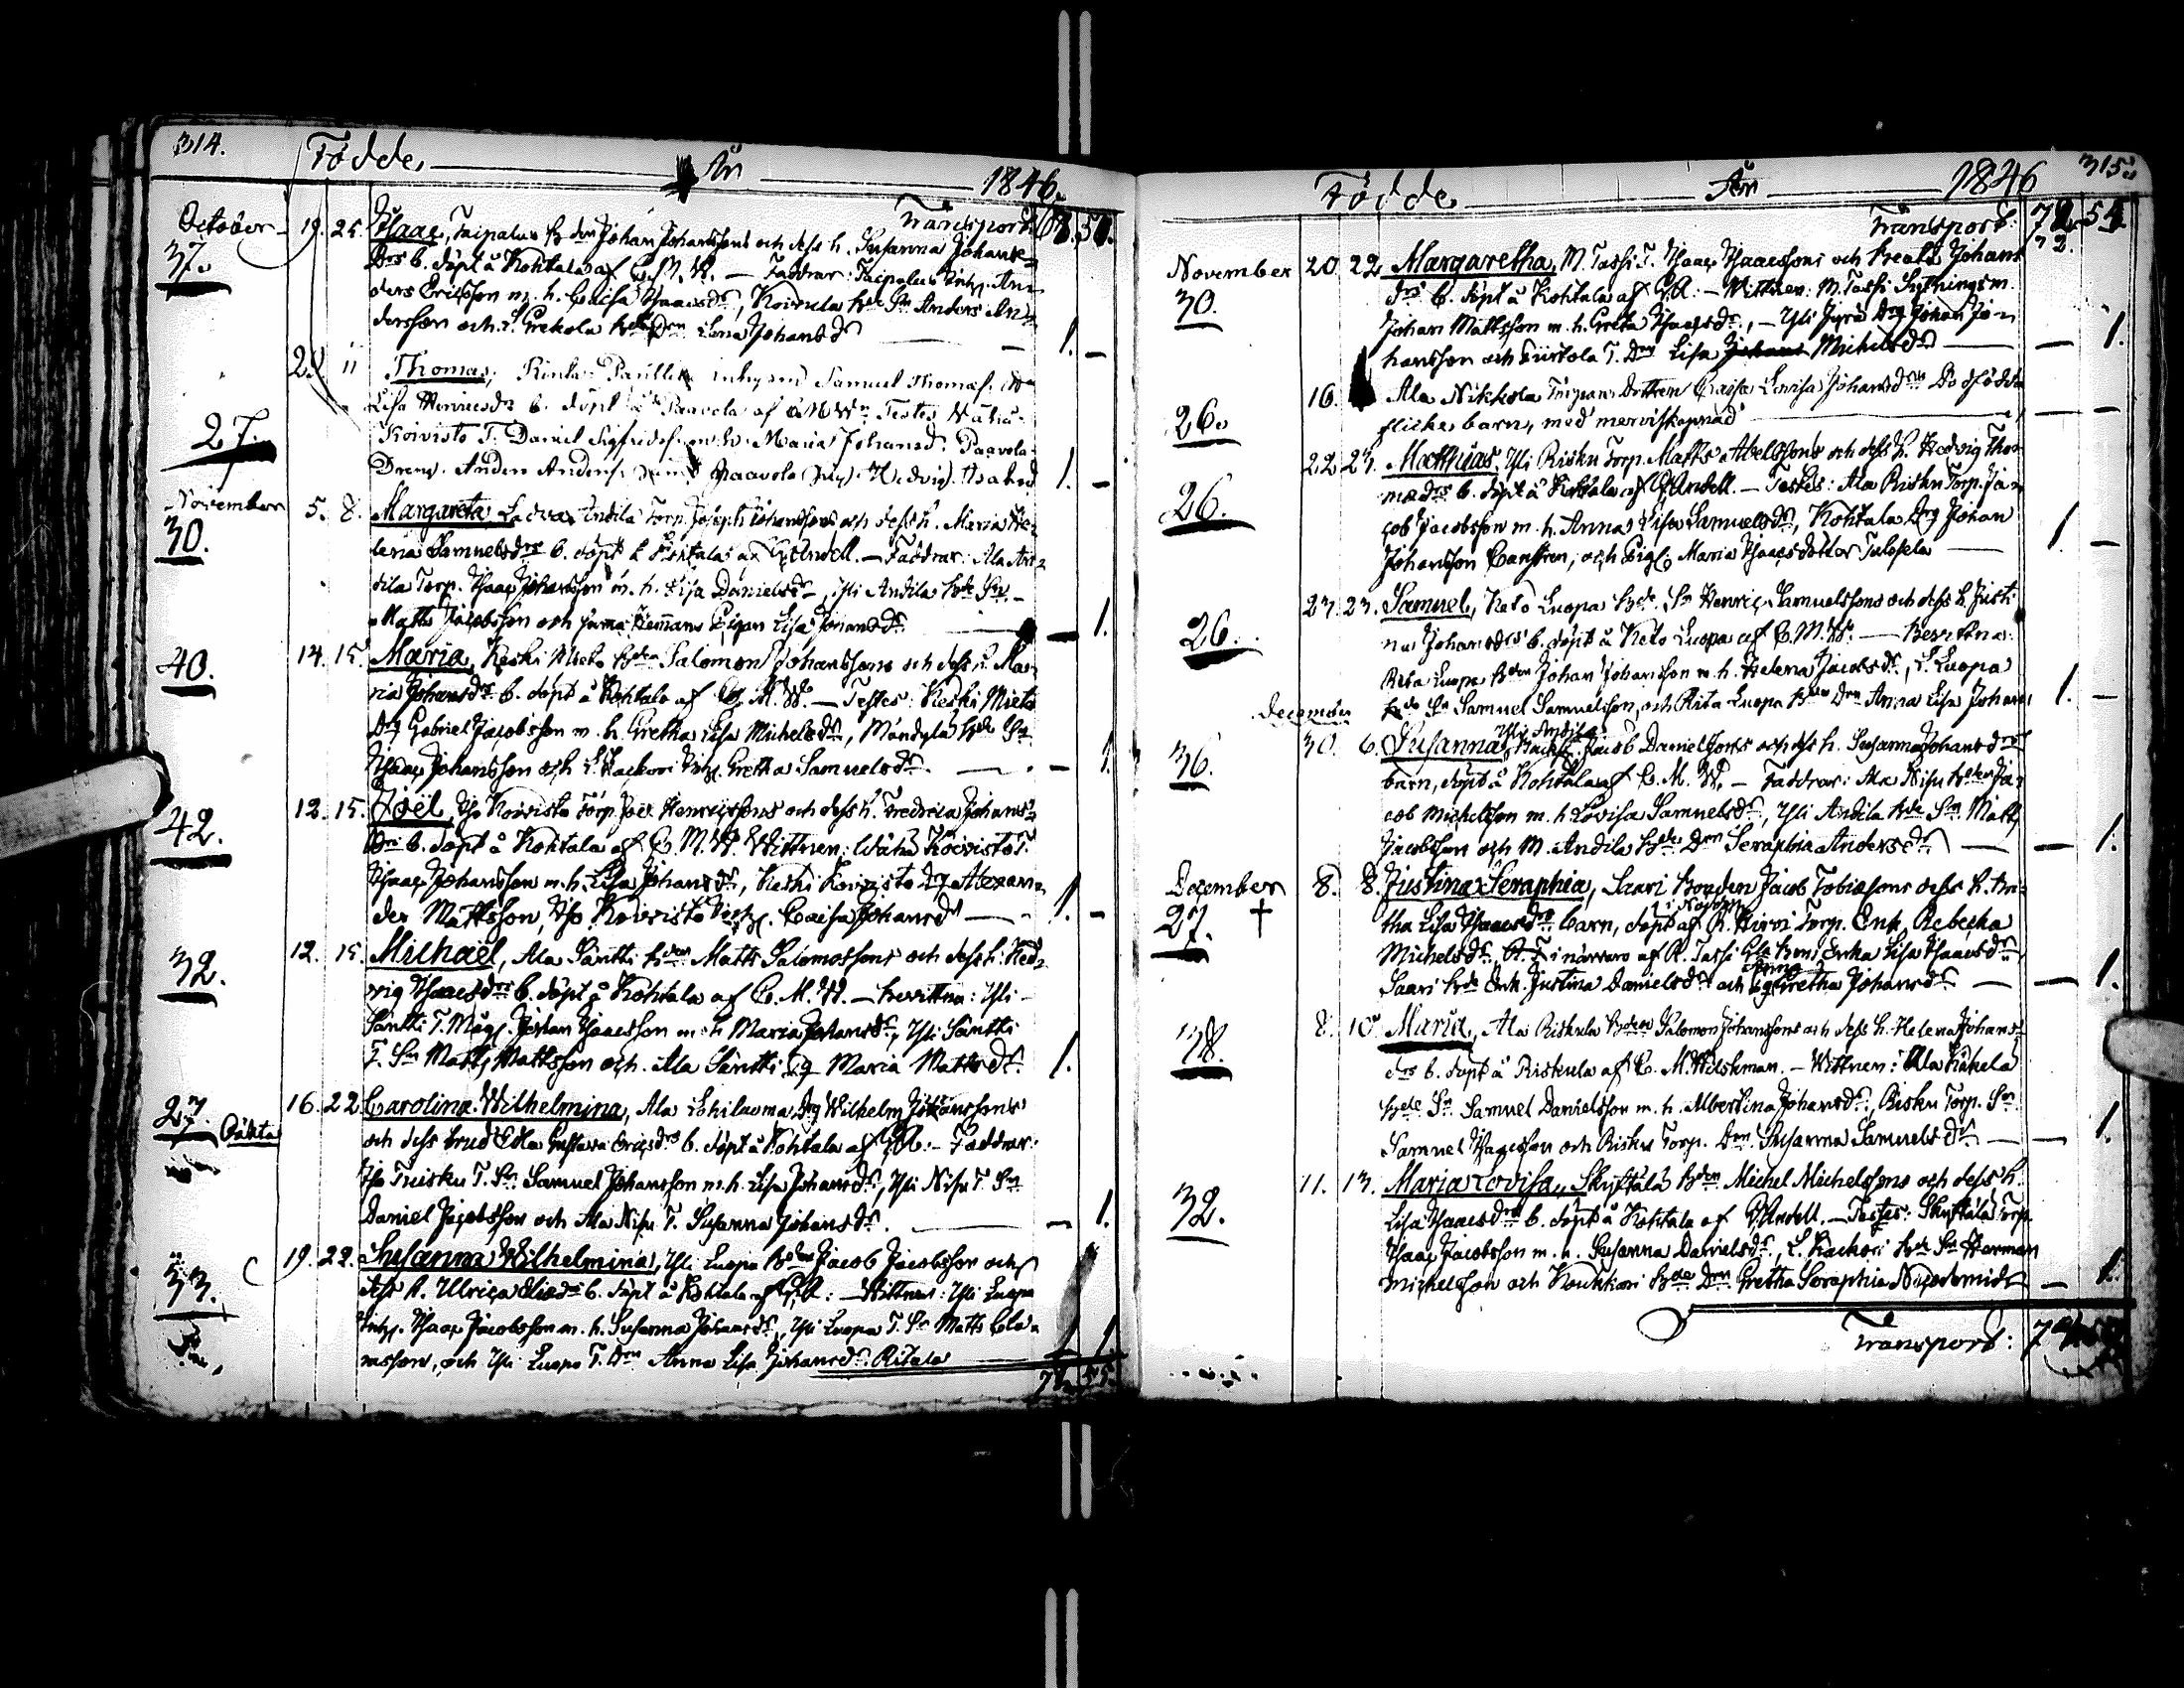 314. Födde, År 1846.
Transport. 68. 51.
October 19. 25. Isaac, Taipalus B:den Johan Johanssons och dess h. Susanna Johans=
37. D:rs b. döpt å Kohtala af C. M. W. — Faddrar: Taipalus Inh. An=
ders Ericsson m. h. Caisa Isaacsd:r, Koivula B:de S:n Anders An=
dersson och L. Prekola B:de D:n Lena Johansd:r — 1. —
20 11 Thomas, Rinta Paullin inhysing Samuel Thomas.
Lisa Henricsd:r b. döpt å Paavola af C M W:n Testes Wähä
27. Koivisto T. Daniel Sigfridss. m. h. Maria Johansd. Paavola
Dreng. Anders Anderss. Paavola Pig. Hedvig Isaksd 1. —
November 5. 8. Margareta, Ladva Andila Torp. Joseph Johanssons och dess h. Maria He=
30. lena Samuelsd:rs b. döpt å Kohtala af G. Andell. — Faddrar: Ala An=
dila Torp. Isaac Johansson m. h. Lisa Danielsd:r, Yli Andila B:de S:n
Matts Jacobsson och Pigan Lisa Johansd:r — 1.
40. 14. 15. Maria, Keski Mieto B:den Salomon Johanssons och dess h. Ma=
ria Johansd:rs b. döpt å Kohtala af C. M. W. — Testes: Keski Mieto
Drg Gabriel Jacobsson m. h. Gretha Lisa Michelsd:r, Mändylä B:de S:n
Isaac Johansson och L. Kackori Inh. Gretha Samuelsd:r. — 1.
42. 12. 15. Joël, Iso Koivisto Torp. Joel Henricssons och dess h. Fredrica Johans=
D:rs b. döpt å Kohtala af C. M. W. Wittnen: Wähä Koivisto T.
Isaac Johansson m. h. Lisa Johansd:r, Keski Koivisto Drg Alexan=
der Mattsson, Iso Koivisto Inh. Caisa Johansd:r — 1. —
32. 12. 15. Michaël, Ala Säntti B:den Matts Salomossons och dess h. Hed=
vig Isaacsd:rs b. döpt å Kohtala af C. M. W. — Bevittna: Yli
Säntti T. Måg. Johan Isaacsson m. h. Maria Johansd:r, Yli Säntti
T. S:n Matts Mattsson och Ala Säntti Pig Maria Mattsd:r. 1.
27. 16. 22. Carolina Wilhelmina, Ala Lohiluoma Drg Wilhelm Johanssons
och dess brud Edla Gustava Ericsd:rs b. döpt å Kohtala af G. A. — Faddrar:
Iso Tuisku T. S:n Samuel Johansson m. h. Lisa Johansd:r, Yli Nisu T. S:n
Daniel Jacobsson och Ala Nisu T. Susanna Johansd:r. — 1.
33. 19. 22. Susanna Wilhelmina, Yli Luopa B:den Jacob Jacobsson och
dess h. Ulrica Eliasd:rs b. döpt å Kohtala af G. A. — Wittnen: Yli Luopa
Inh. Isaac Jacobsson m. h. Susanna Johansd:r, Yli Luopa T. S:n Matts
och Yli Luopa T. D:n Anna Lisa Johansd:r Ritala 1
315. Födde År 1846
Transport: 72. 54.
72.
November 20. 22. Margaretha, M. Tassi T. Isaac Isaacssons och Beata Johans
30. d:rs b. döpt å Kohtala af G. A. — Wittnen: M. Tassi Sytningsm.
Johan Mattsson m. h. Greta Isaacsd:r, — Yli Jyrä Drg Johan Jo=
hansson och Liistola T. D:n Lisa Michelsd:r — 1.
16. Ala Nikkola Torpare Dottren Caisa Lovisa Johansd:rs Dödfödda
26. flicke barn, med menviskapnad — —
22. 23. Matthias, Yli Risku Torp. Matts Abelssons och dess h. Hedvig Tho=
26. mæd:rs b. döpt å Kohtala af G. Andell. — Testes: Ala Risku Torp. Ja=
cob Jacobsson m. h. Anna Lisa Samuelsd:r, Kohtala Drg Johan
Johansson Castren, och Pig. Maria Isaacsdotter Talosela — 1 —
23. 23. Samuel, Keto Luopa B:de S:n Henric Samuelssons och dess h. Justi=
26. na Johansd:rs b. döpt å Keto Luopa af C. M. W. — Bevittna:
Rita Luopa B:den Johan Johansson m. h. Helena Jacobsd:r, L. Luopa
B:de S:n Samuel Samuelsson, och Rita Luopa B:de D:n Anna Lisa Johans 1. —
December
30. 6. Susanna, Yli Andila Jacob Danielssons och dess h. Susanna Johansd:rs
36. barn, döpt å Kohtala af C. M. W. — Faddrar: Ala Nisu B:den Ja=
cob Michelsson m. h Lovisa Samuelsd:r, Yli Andila B:de S:n Matts
Jacobsson och M. Andila B:de D:n Seraphia Andersd:r — 1.
December 8. 8. Justina Seraphia, Saari Bonden Jacob Tobiassons dess h.
27. † Lisa Isaacsd:rs barn, döpt af R. Hirvi Torp. Enk. Rebecka
Michelsd:r, i närvaro af R. Tassi Enka Lisa Isaacsd:r,
Saari B:de Enk. Justina Danielsd:r och Pig Anna Gretha Johansd:r — 1.
38. 8. 10. Maria, Ala Riskula B:den Salomon Johanssons och dess h. Helena Johans=
d:rs b. döpt å Riskula af C. M. Wilskman. — Wittnen: Ala Käkelä
B:de S:n Samuel Danielsson m. h. Albertina Johansd:r, Risku Torp. S:n
Samuel Isaacsson och Risku Torp. D:n Susanna Samuelsd:r — 1.
32. 11. 13. Maria Lovisa, Skyttälä B:den Michel Michelssons och dess h.
Lisa Isaacsd:rs b. döpt å Kohtala af G. Andell. — Testes: Skyttälä Torp.
Isaac Jacobsson m. h. Susanna Danielsd:r, L. Kackori B:de S:n Herman
Michelsson och Koukkari B:de D:n Gretha Seraphia Nicodemid:r — 1.
Transport: